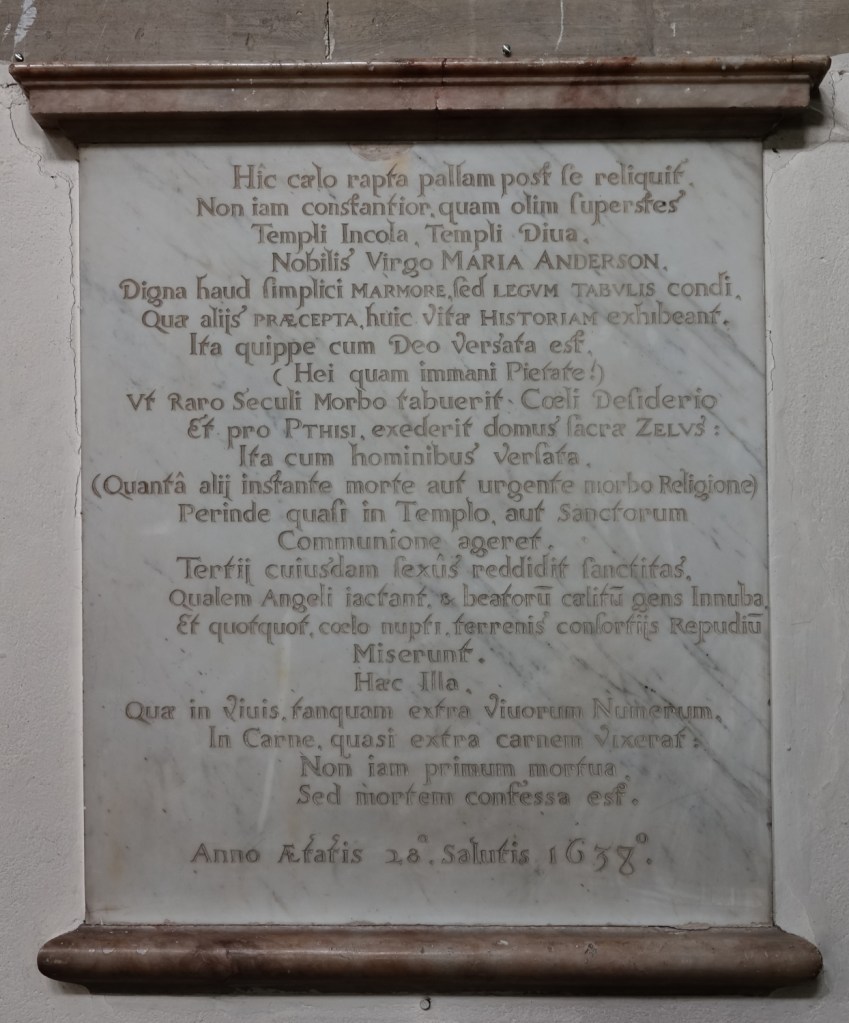 Hîc cælo rapta pallam post se reliquit.
Non iam constantior, quam olim superstes
Templi Incola, Templi Diua,
Nobilis Virgo MARIA ANDERSON.
Digna haud simplici MARMORE, sed LEGVM TABVLIS condi.
Quæ alijs PRÆCEPTA, huic vitæ HISTORIAM exhibeant.
Ita quippe cum Deo versata est.
(Hei quam immani Pietate!)
Vt Raro Seculi Morbo tabuerit. Cœli Desiderio
Et pro PTHISI, exederit domus sacræ ZELVS:
Ita cum hominibus versata.
(Quantâ alij instante morte aut urgente morbo Religione)
Perinde quasi in Templo, aut Sanctorum
Communione ageret.
Tertij cuiusdam sexûs reddidit sanctitas.
Qualem Angeli iactant, & beatorū cælitū gens Innuba.
Et quotquot, cœlo nupti, terrenis consortijs Repudiū
Miserunt.
Hæc Illa,
Quæ in Viuis, tanquam extra Viuorum Numerum,
In Carne, quasi extra carnem vixerat:
Non iam primum mortua,
Sed mortem confessa est.
Anno Ætatis 28°. Salutis 1638°.